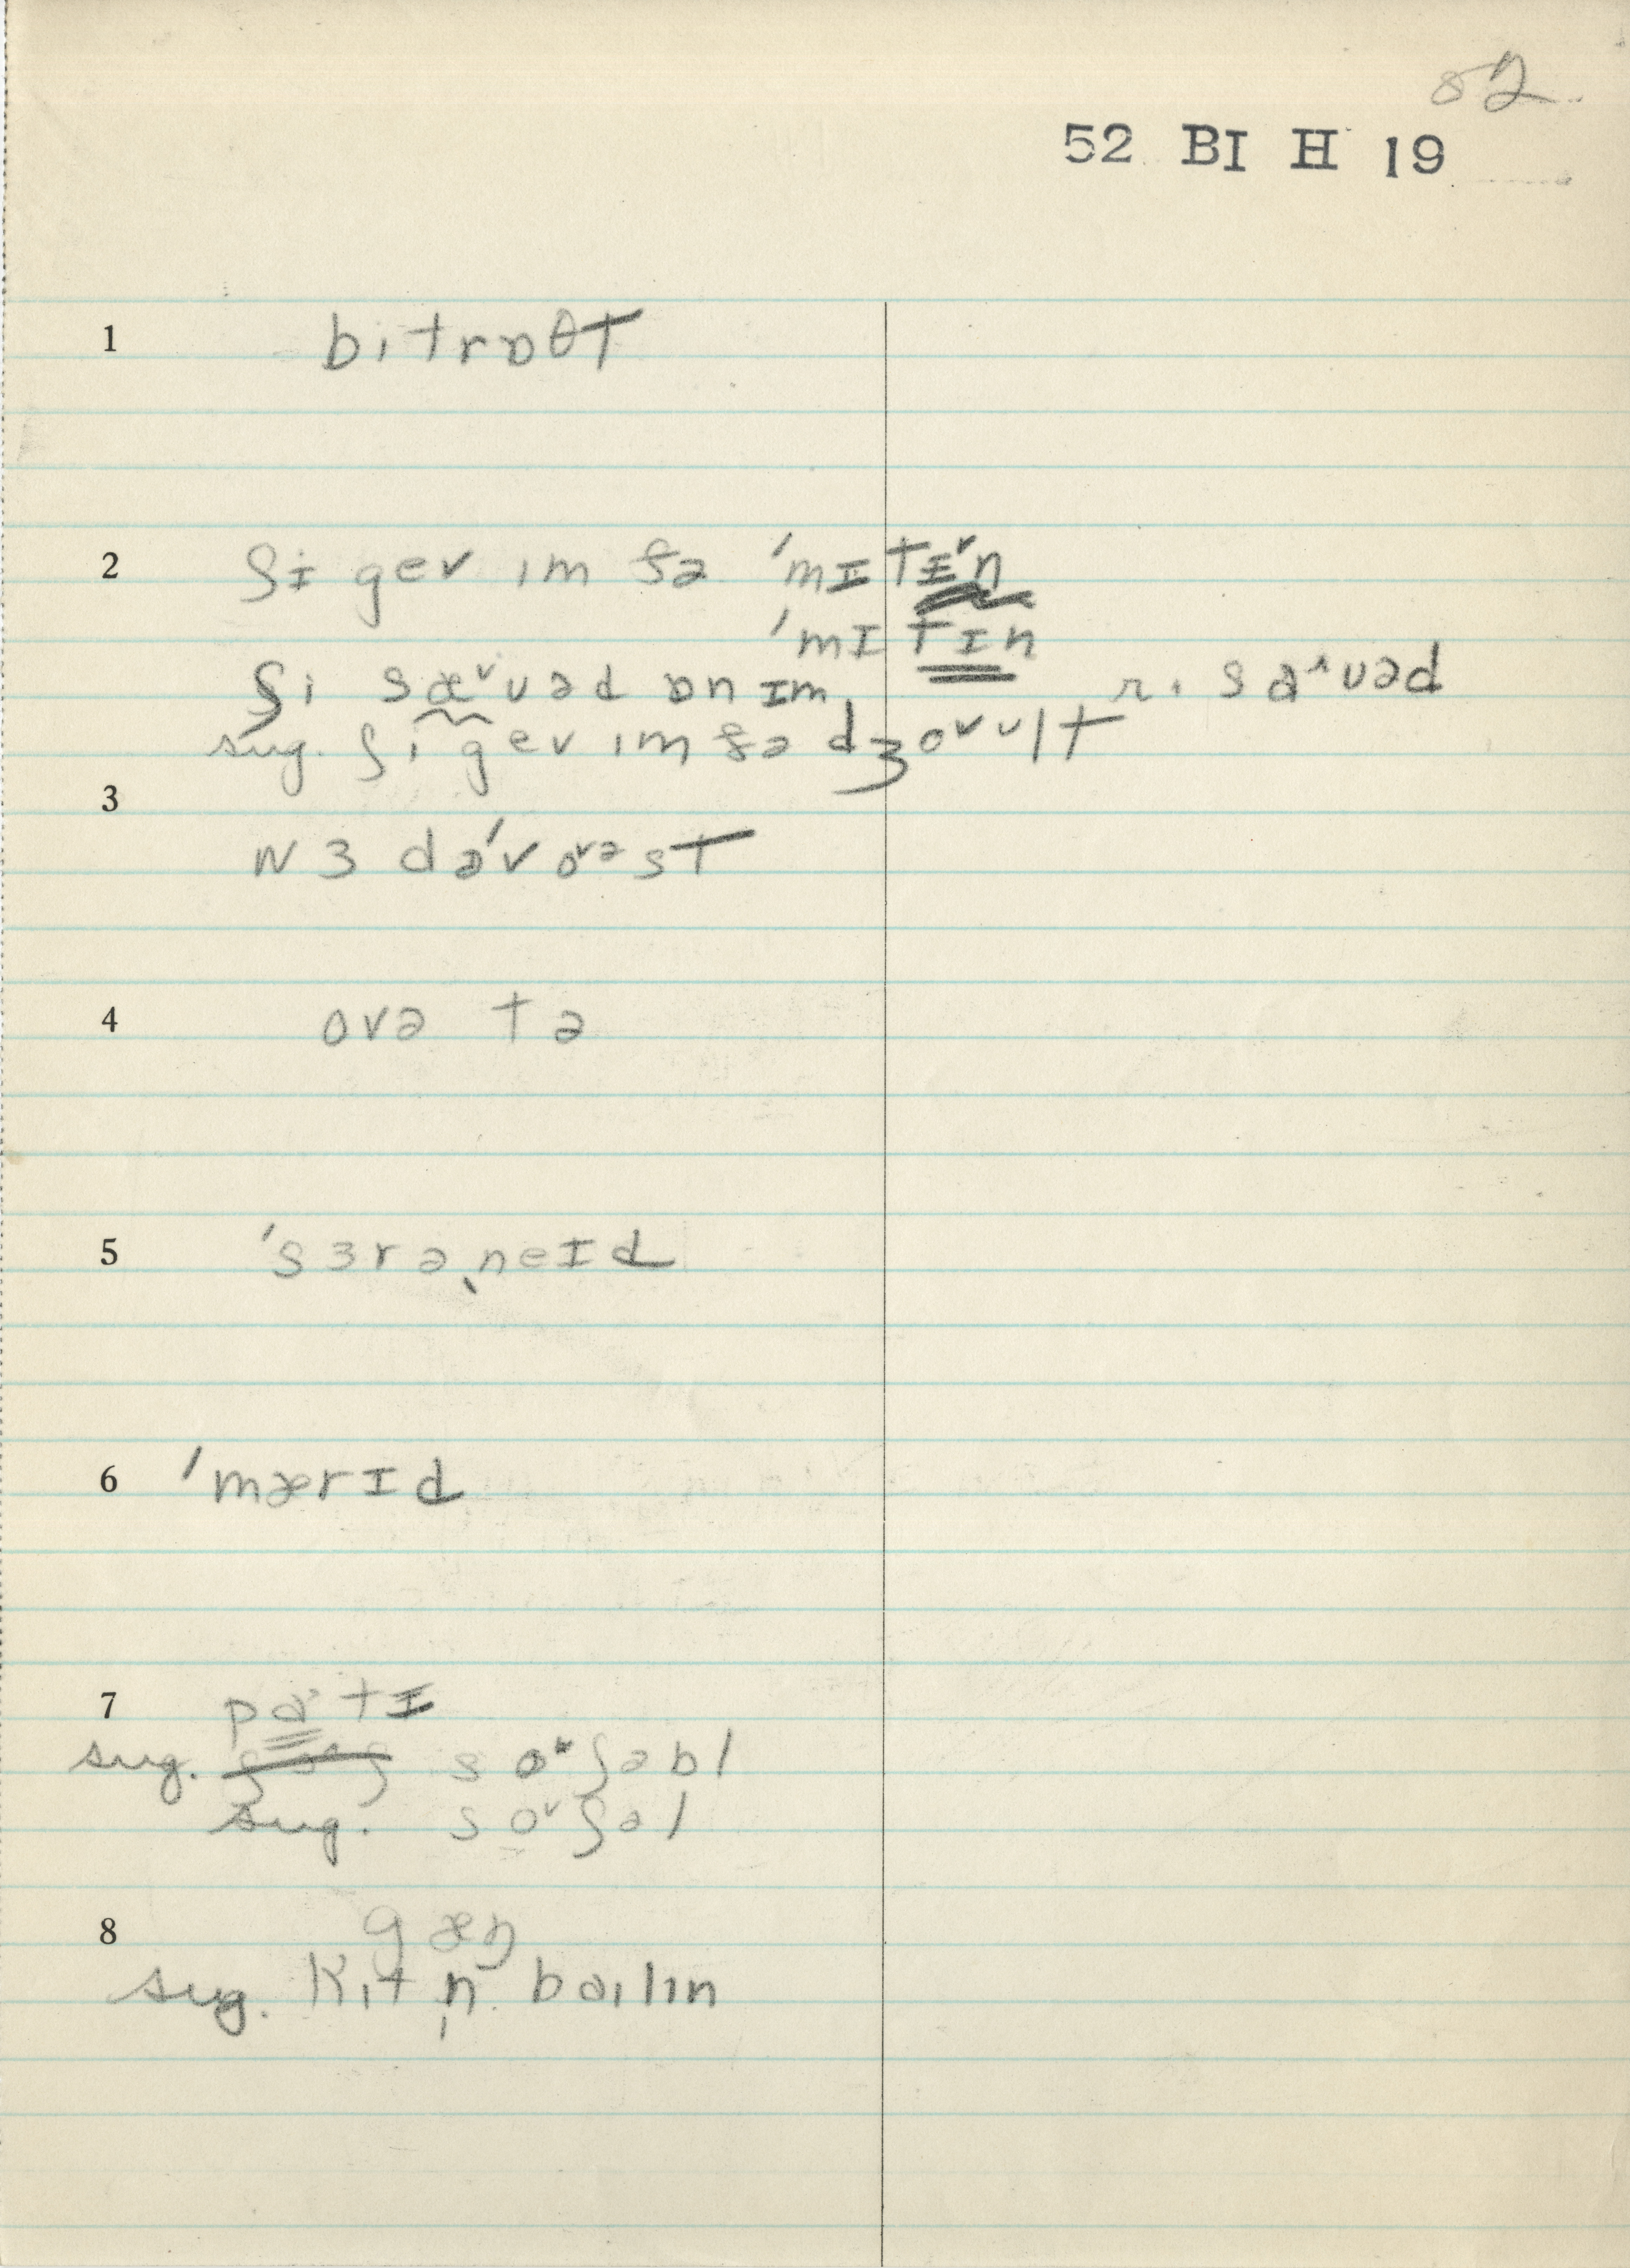 82
52 BI H 19
1 bitrɒθt
2 ʃɪ gev ɪm ðə 'mɪtɪ˅n
'mɪtɪn
ʃi sæ˅ʊəd ɒn ɪm r. sa˄ʊəd
sug. ʃi gev ɪm ðə dʒo˅ʊlt
3
wɜ də'vo˅əst
4 ovə tə
5 'sɜrəˌneɪd
6 'mærɪd
7 pa tɪ
sug. so˅ʃəbl
sug. so˅ʃəl
8 gæŋ
sug. Kɪtn̩ baɪlɪn